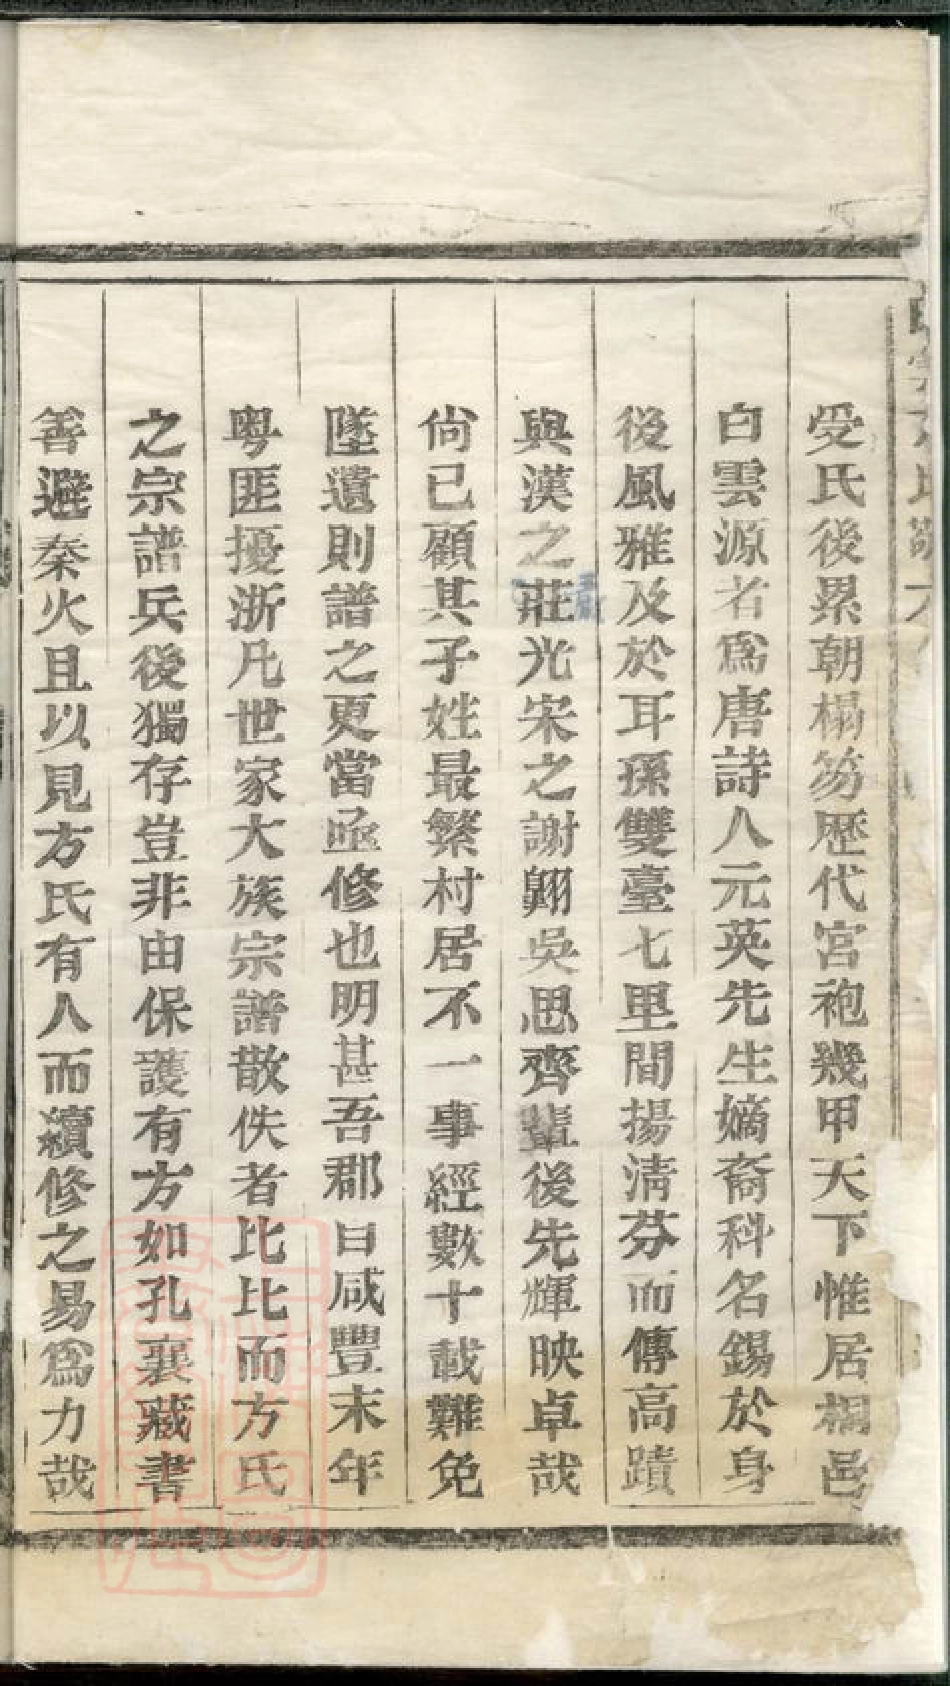 受氏後累朝榻笏歴代宮袍幾甲天下惟居桐邑
白雲源者爲唐詩人元英先生嫡裔科名錫於身
後風雅及於耳孫雙臺七里間揚淸芬而傳高蹟
與漢之莊光宋之謝翺吳思齊輩後先輝映卓哉
尙已顧其子姓最繁村居不一事經數十載難免
墜遺則譜之更當亟修也明甚吾郡曰咸豐末年
粤匪擾浙凡世家大族宗譜散佚者比比而方氏
之宗譜兵後獨存豈非由保護有方如孔襄藏書
善避秦火且以見方氏有人而續修之易爲力哉